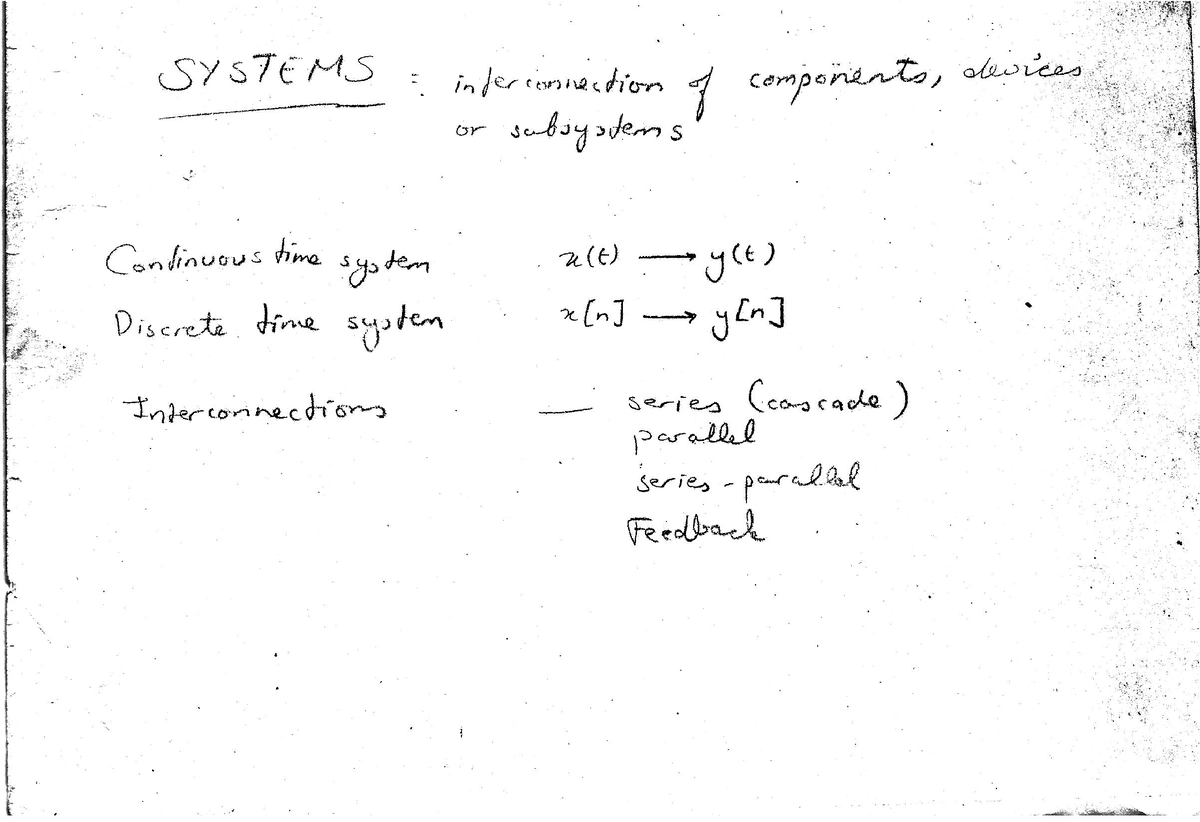 SYSTEMS : interconnection of components, devices
or subsystems
Continuous time system x(t) → y(t)
Discrete time system x[n] → y[n]
Interconnections — series (cascade)
parallel
series - parallel
Feedback